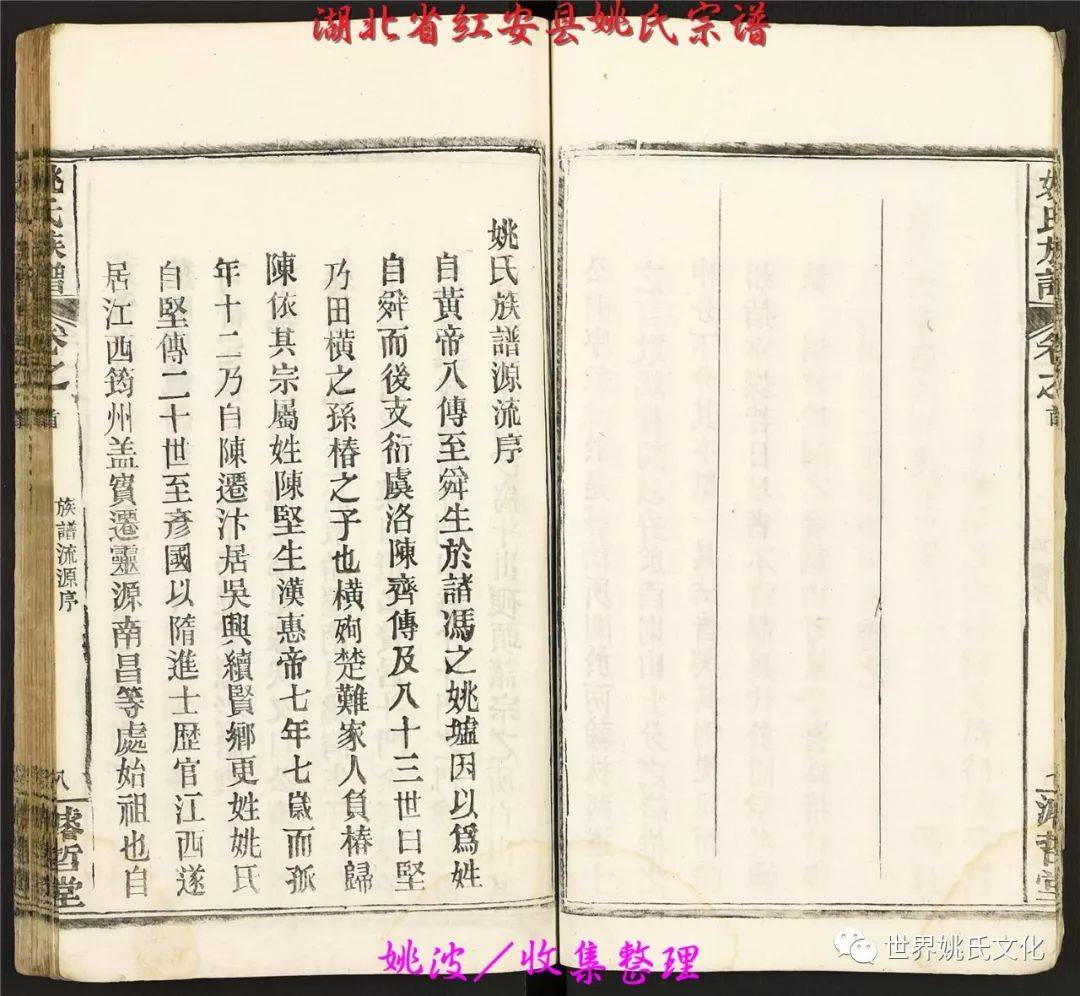 湖北省红安县姚氏宗谱
姚氏族譜源流序
自黃帝八傳至舜生於諸馮之姚墟因以爲姓
自舜而後支衍虞洛陳齊傳及八十三世曰堅
乃田橫之孫椿之子也橫殉楚難家人負椿歸
陳依其宗屬姓陳堅生漢惠帝七年七歲而孤
年十二乃自陳遷汴居吳興續賢鄉更姓姚氏
自堅傳二十世至彥國以隋進士歷官江西遂
居江西筠州盖實遷靈源南昌等處始祖也自
姚氏族譜 卷之首
族譜流源序
八 濬哲堂
姚氏族譜 卷之首
哲堂
姚波／收集整理
世界姚氏文化